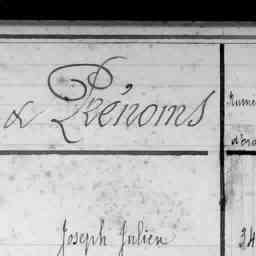 & Prénoms
Joseph Julien
34